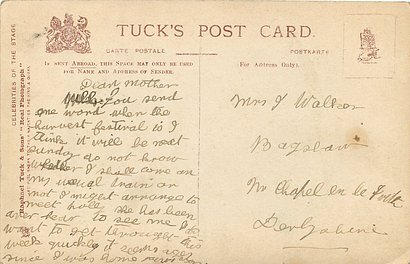 TUCK'S POST CARD.
CARTE POSTALE
POSTKARTE
IN SENT ABROAD, THIS SPACE MAY ONLY BE USED
FOR NAME AND ADDRESS OF SENDER.
(For Address Only).
CELEBRITIES OF THE STAGE
Raphael Tuck & Sons' "Real Photograph"
Dear Mother
Will you send
me word when the
harvest festival is I
think it will be next
sunday do not know
whether I shall come on
my usual train or
not I might arrange to
meet Polly she has been
over hear to see me I do
want to get through this
week quickly it seems ages
since I was home
Mrs J Walker
Bagshaw
Nr Chapel en le Frith
Derbyshire